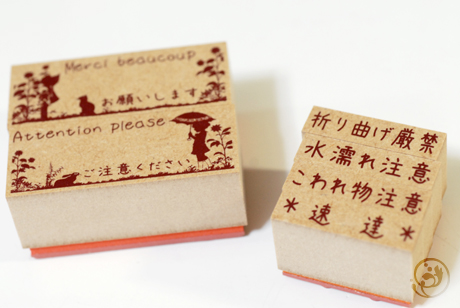 Merci beaucoup
お願いします
Attention please
ご注意ください
折り曲げ厳禁
水濡れ注意
こわれ物注意
＊速達＊